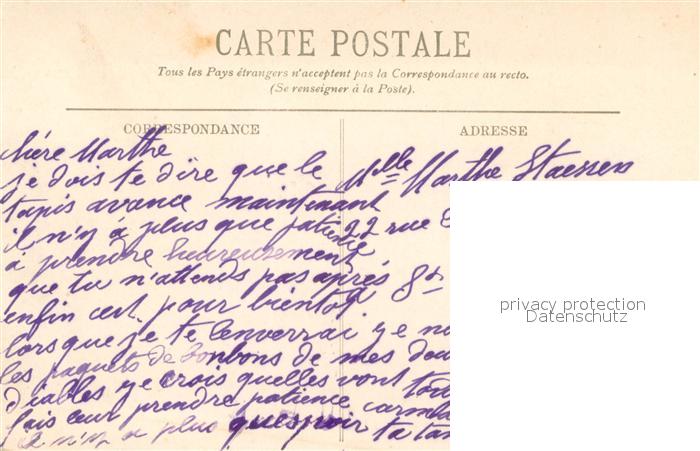 CARTE POSTALE
Tous les Pays étrangers n'acceptent pas la Correspondance au recto.
(Se renseigner à la Poste).
CORRESPONDANCE
chère Marthe
je dois te dire que le
tapis avance maintenant
il n'y a plus que patience
à prendre heureusement
que tu n'attends pas après
enfin cest pour bientot
lorsque je te l'enverrai je
les paquets de bonbons de mes
Diables je crois quelles vont
fais leur prendre patience
il n'y a plus quespoir ta
ADRESSE
Mlle Marthe Staessen
22 rue
privacy protection
Datenschutz